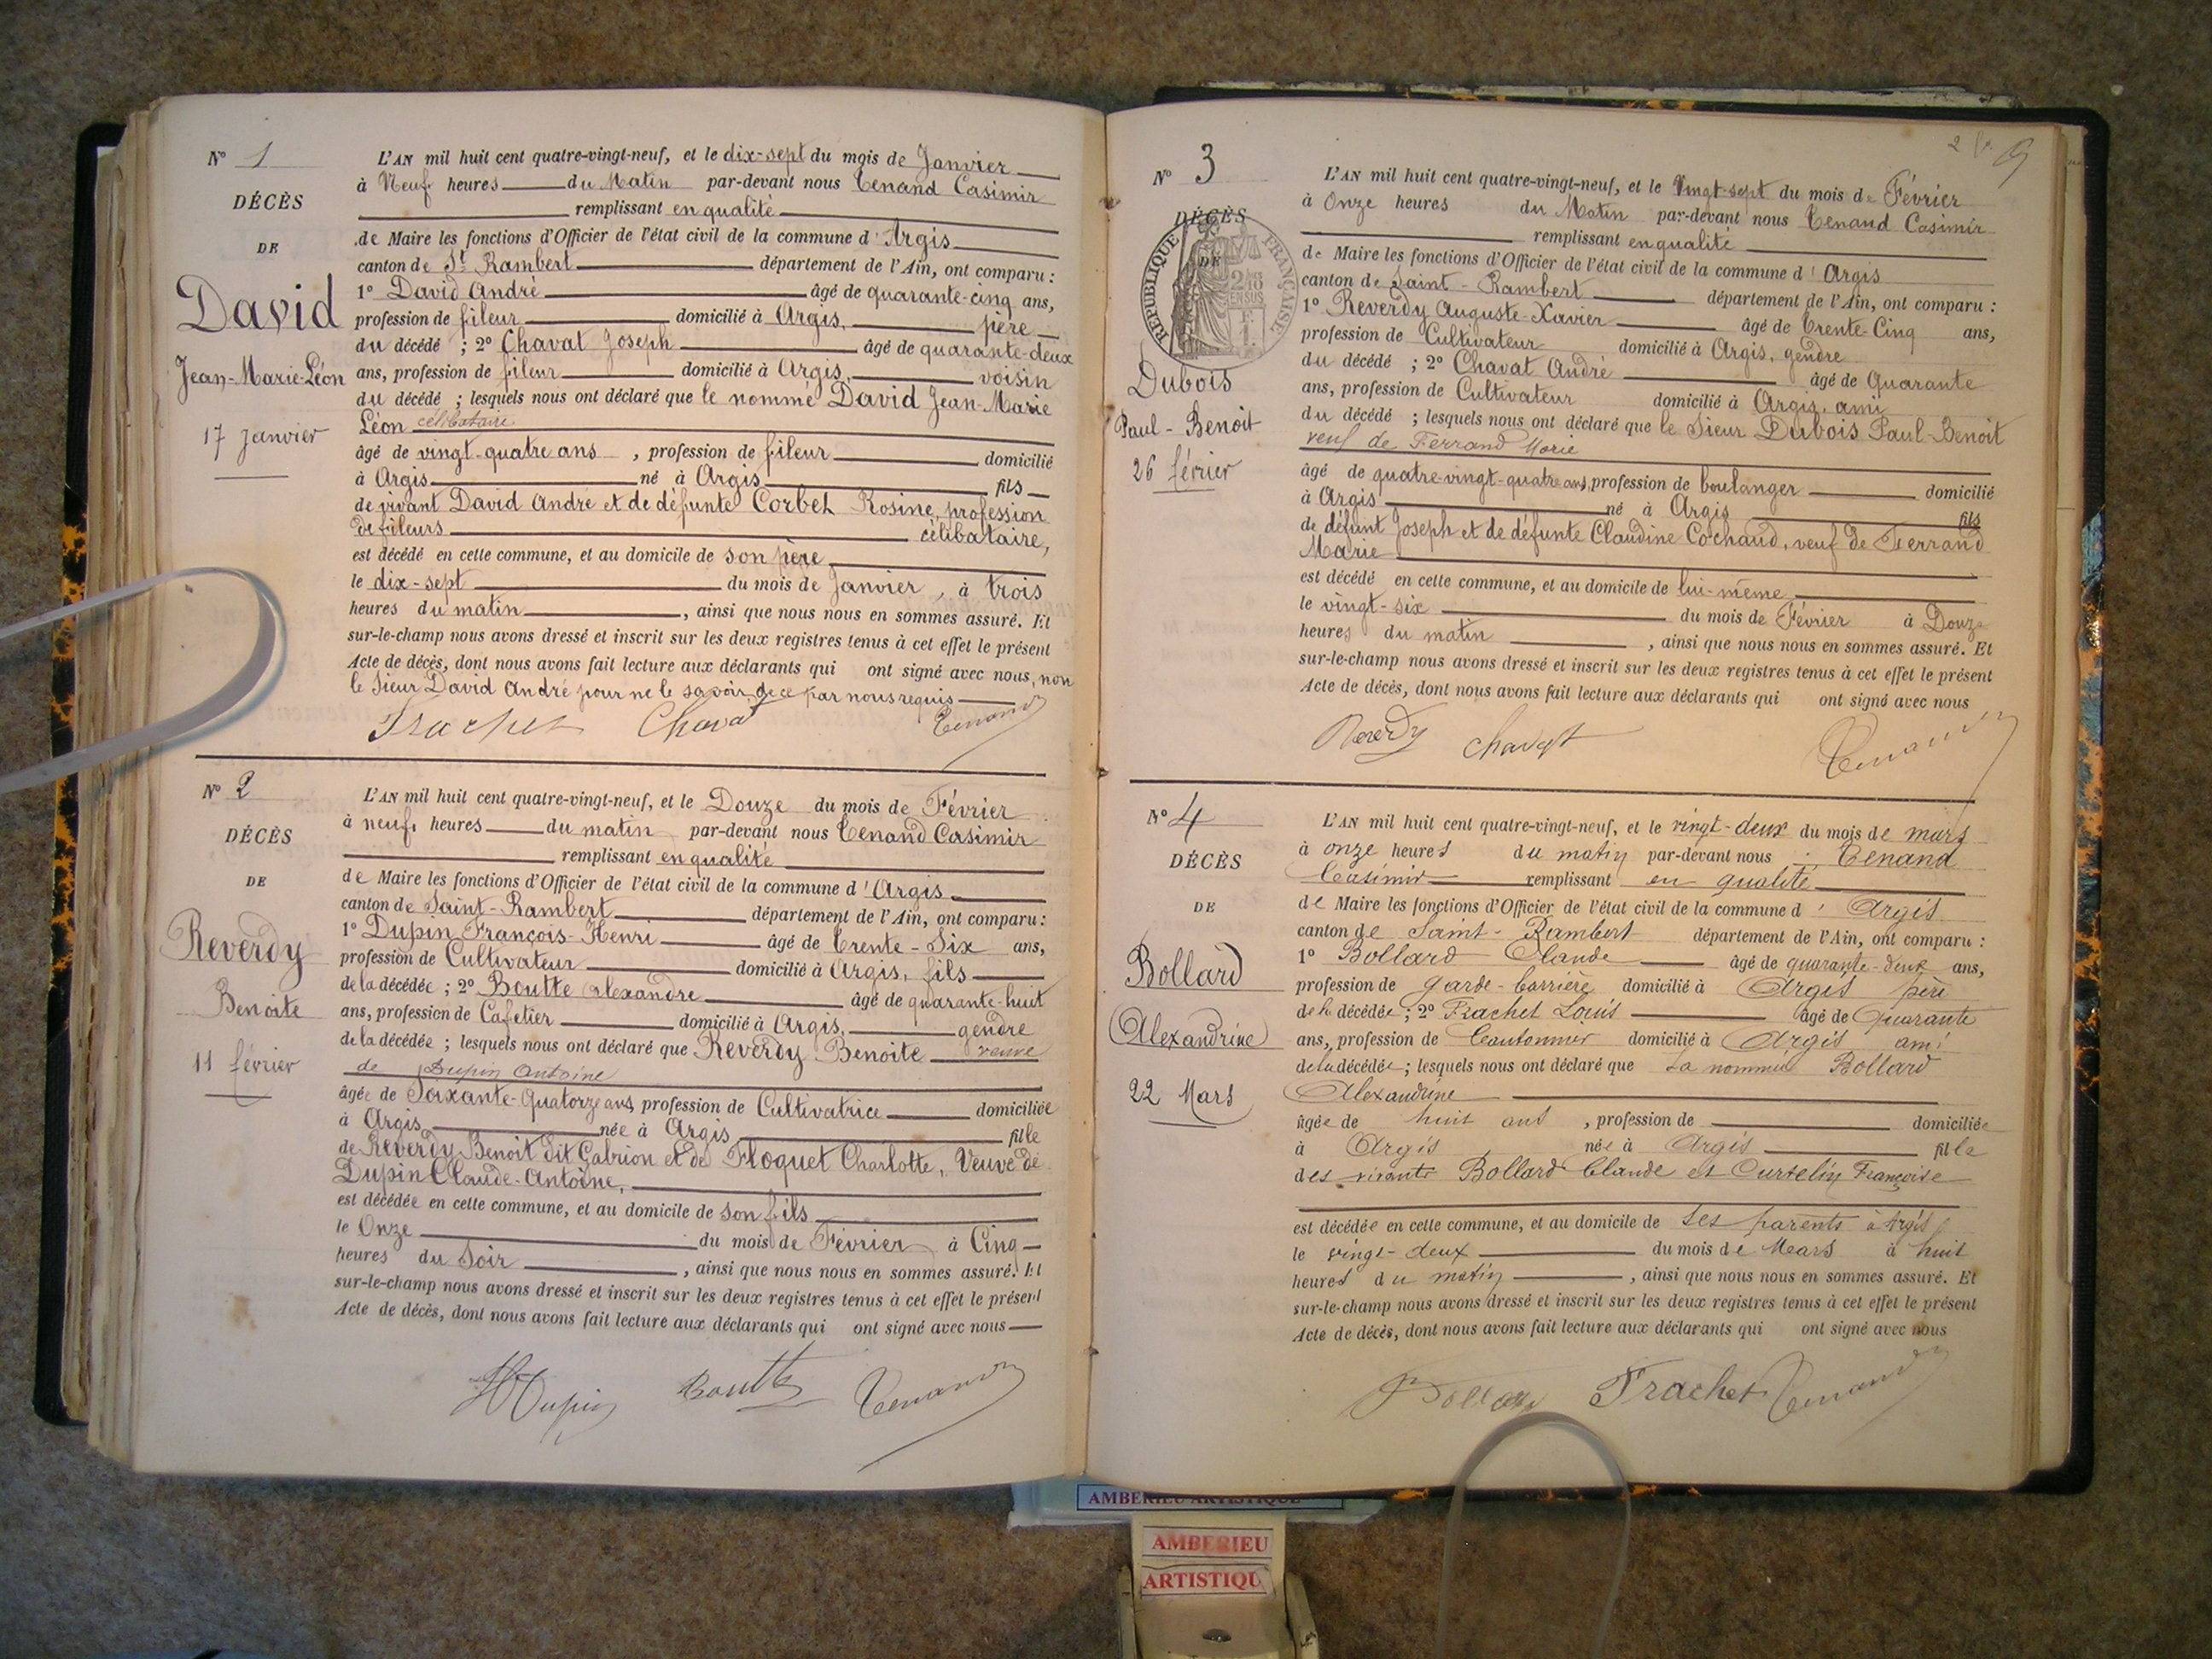 N° 1
DÉCÈS
DE
David
Jean-Marie-Léon
17 Janvier
L'AN mil huit cent quatre-vingt-neuf, et le dix-sept du mois de Janvier
à Neuf heures du Matin par-devant nous Tenand Casimir
remplissant en qualité
de Maire les fonctions d'Officier de l'état civil de la commune d'Argis
canton de St Rambert département de l'Ain, ont comparu :
1° David André âgé de quarante-cinq ans,
profession de fileur domicilié à Argis, père
du décédé ; 2° Chavat Joseph âgé de quarante-deux
ans, profession de fileur domicilié à Argis, voisin
du décédé ; lesquels nous ont déclaré que le nommé David Jean-Marie
Léon célibataire
âgé de vingt-quatre ans, profession de fileur domicilié
à Argis né à Argis fils
de vivant David André et de défunte Corbet Rosine, profession
de fileurs célibataire,
est décédé en cette commune, et au domicile de son père
le dix-sept du mois de Janvier, à trois
heures du matin, ainsi que nous nous en sommes assuré. Et
sur-le-champ nous avons dressé et inscrit sur les deux registres tenus à cet effet le présent
Acte de décès, dont nous avons fait lecture aux déclarants qui ont signé avec nous, non
le Sieur David André pour ne le savoir de ce par nous requis
Trachet Chavat Tenand
N° 2
DÉCÈS
DE
Reverdy
Benoite
11 février
L'AN mil huit cent quatre-vingt-neuf, et le Douze du mois de Février
à neuf heures du matin par-devant nous Tenand Casimir
remplissant en qualité
de Maire les fonctions d'Officier de l'état civil de la commune d'Argis
canton de Saint-Rambert département de l'Ain, ont comparu :
1° Dupin François-Henri âgé de Trente-Six ans,
profession de Cultivateur domicilié à Argis, fils
de la décédée ; 2° Boutte Alexandre âgé de quarante-huit
ans, profession de Cafetier domicilié à Argis, gendre
de la décédée ; lesquels nous ont déclaré que Reverdy Benoite veuve
de Dupin Antoine
âgée de Soixante-Quatorze ans, profession de Cultivatrice domiciliée
à Argis née à Argis fille
de Reverdy Benoit dit Gabrion et de Floquet Charlotte, Veuve de
Dupin Claude-Antoine,
est décédée en cette commune, et au domicile de son fils
le Onze du mois de Février à Cinq
heures du Soir, ainsi que nous nous en sommes assuré. Et
sur-le-champ nous avons dressé et inscrit sur les deux registres tenus à cet effet le présent
Acte de décès, dont nous avons fait lecture aux déclarants qui ont signé avec nous
HDupin Boutte Tenand
N° 3
DÉCÈS
DE
RÉPUBLIQUE FRANÇAISE
Dubois
Paul-Benoit
26 février
L'AN mil huit cent quatre-vingt-neuf, et le Vingt-sept du mois de Février
à Onze heures du Matin par-devant nous Tenand Casimir
remplissant en qualité
de Maire les fonctions d'Officier de l'état civil de la commune d'Argis
canton de Saint-Rambert département de l'Ain, ont comparu :
1° Reverdy Auguste-Xavier âgé de Trente-Cinq ans,
profession de Cultivateur domicilié à Argis, gendre
du décédé ; 2° Chavat André âgé de Quarante
ans, profession de Cultivateur domicilié à Argis, ami
du décédé ; lesquels nous ont déclaré que le Sieur Dubois Paul-Benoit
veuf de Ferrand Marie
âgé de quatre-vingt-quatre ans, profession de boulanger domicilié
à Argis né à Argis fils
de défunt Joseph et de défunte Claudine Cochaud, veuf de Ferrand
Marie
est décédé en cette commune, et au domicile de lui-même
le vingt-six du mois de Février à Douze
heures du matin, ainsi que nous nous en sommes assuré. Et
sur-le-champ nous avons dressé et inscrit sur les deux registres tenus à cet effet le présent
Acte de décès, dont nous avons fait lecture aux déclarants qui ont signé avec nous
Reverdy Chavat Tenand
N° 4
DÉCÈS
DE
Bollard
Alexandrine
22 Mars
L'AN mil huit cent quatre-vingt-neuf, et le vingt-deux du mois de mars
à onze heures du matin par-devant nous Tenand
Casimir remplissant en qualité
de Maire les fonctions d'Officier de l'état civil de la commune d'Argis
canton de Saint-Rambert département de l'Ain, ont comparu :
1° Bollard Claude âgé de quarante-deux ans,
profession de garde-barrière domicilié à Argis père
de la décédée ; 2° Frachet Louis âgé de Quarante
ans, profession de Cantonnier domicilié à Argis ami
de la décédée ; lesquels nous ont déclaré que la nommée Bollard
Alexandrine
âgée de huit ans, profession de domiciliée
à Argis née à Argis fille
des vivants Bollard Claude et Curtelin Françoise
est décédée en cette commune, et au domicile de ses parents à Argis
le vingt-deux du mois de Mars à huit
heures du matin, ainsi que nous nous en sommes assuré. Et
sur-le-champ nous avons dressé et inscrit sur les deux registres tenus à cet effet le présent
Acte de décès, dont nous avons fait lecture aux déclarants qui ont signé avec nous
Bollard Frachet Tenand
AMBERIEU ARTISTIQUE
AMBERIEU
ARTISTIQU